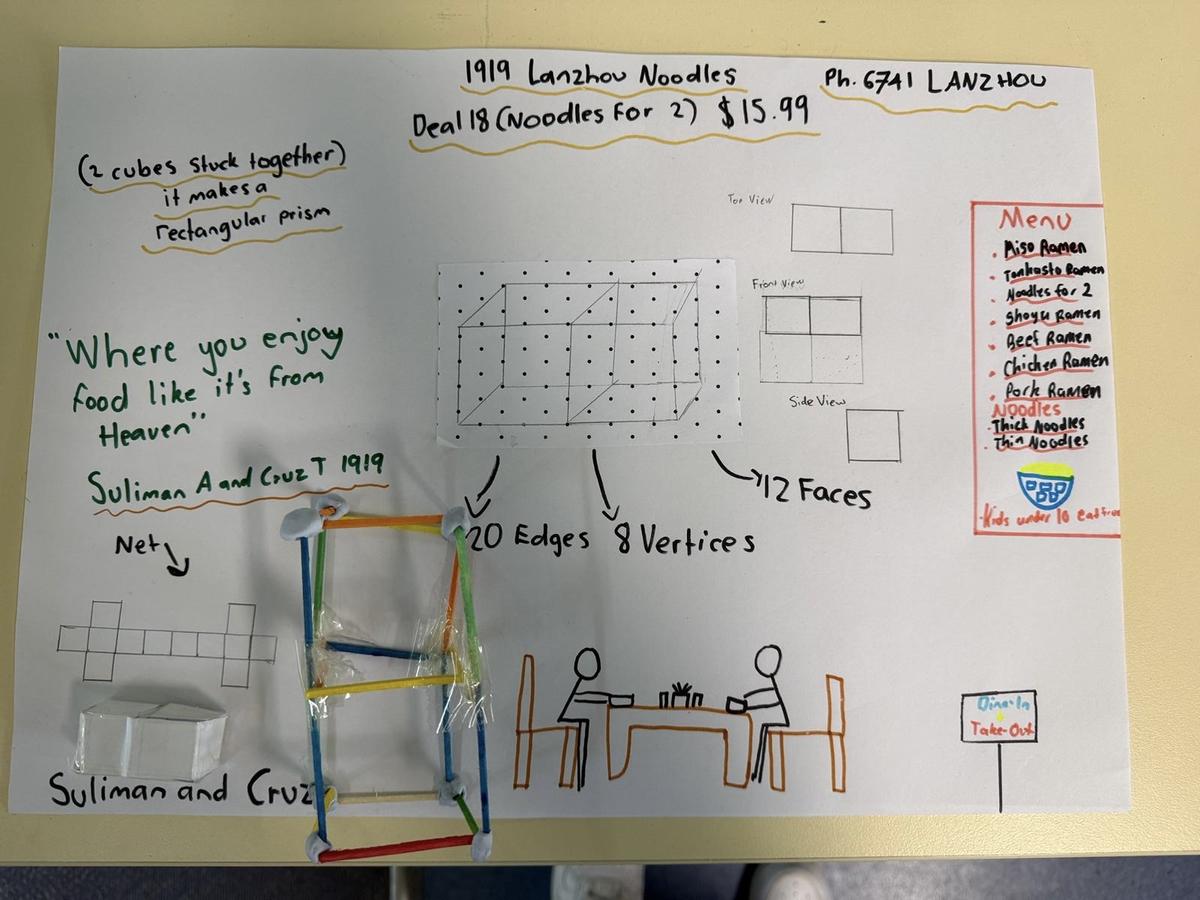 1919 Lanzhou Noodles
Ph. 6741 LANZHOU
Deal 18 (Noodles For 2) $15.99
(2 cubes stuck together)
it makes a
rectangular prism
"Where you enjoy
food like it's from
Heaven"
Suliman A and Cruz T 1919
Top View
Front View
Side View
Menu
. Miso Ramen
. Tonkasto Ramen
. Noodles for 2
. Shoyu Ramen
. Beef Ramen
. Chicken Ramen
. Pork Ramen
Noodles
. Thick Noodles
. Thin Noodles
. Kids under 10 eat free
20 Edges
8 Vertices
12 Faces
Net
Suliman and Cruz
Dine-In
+
Take-Out